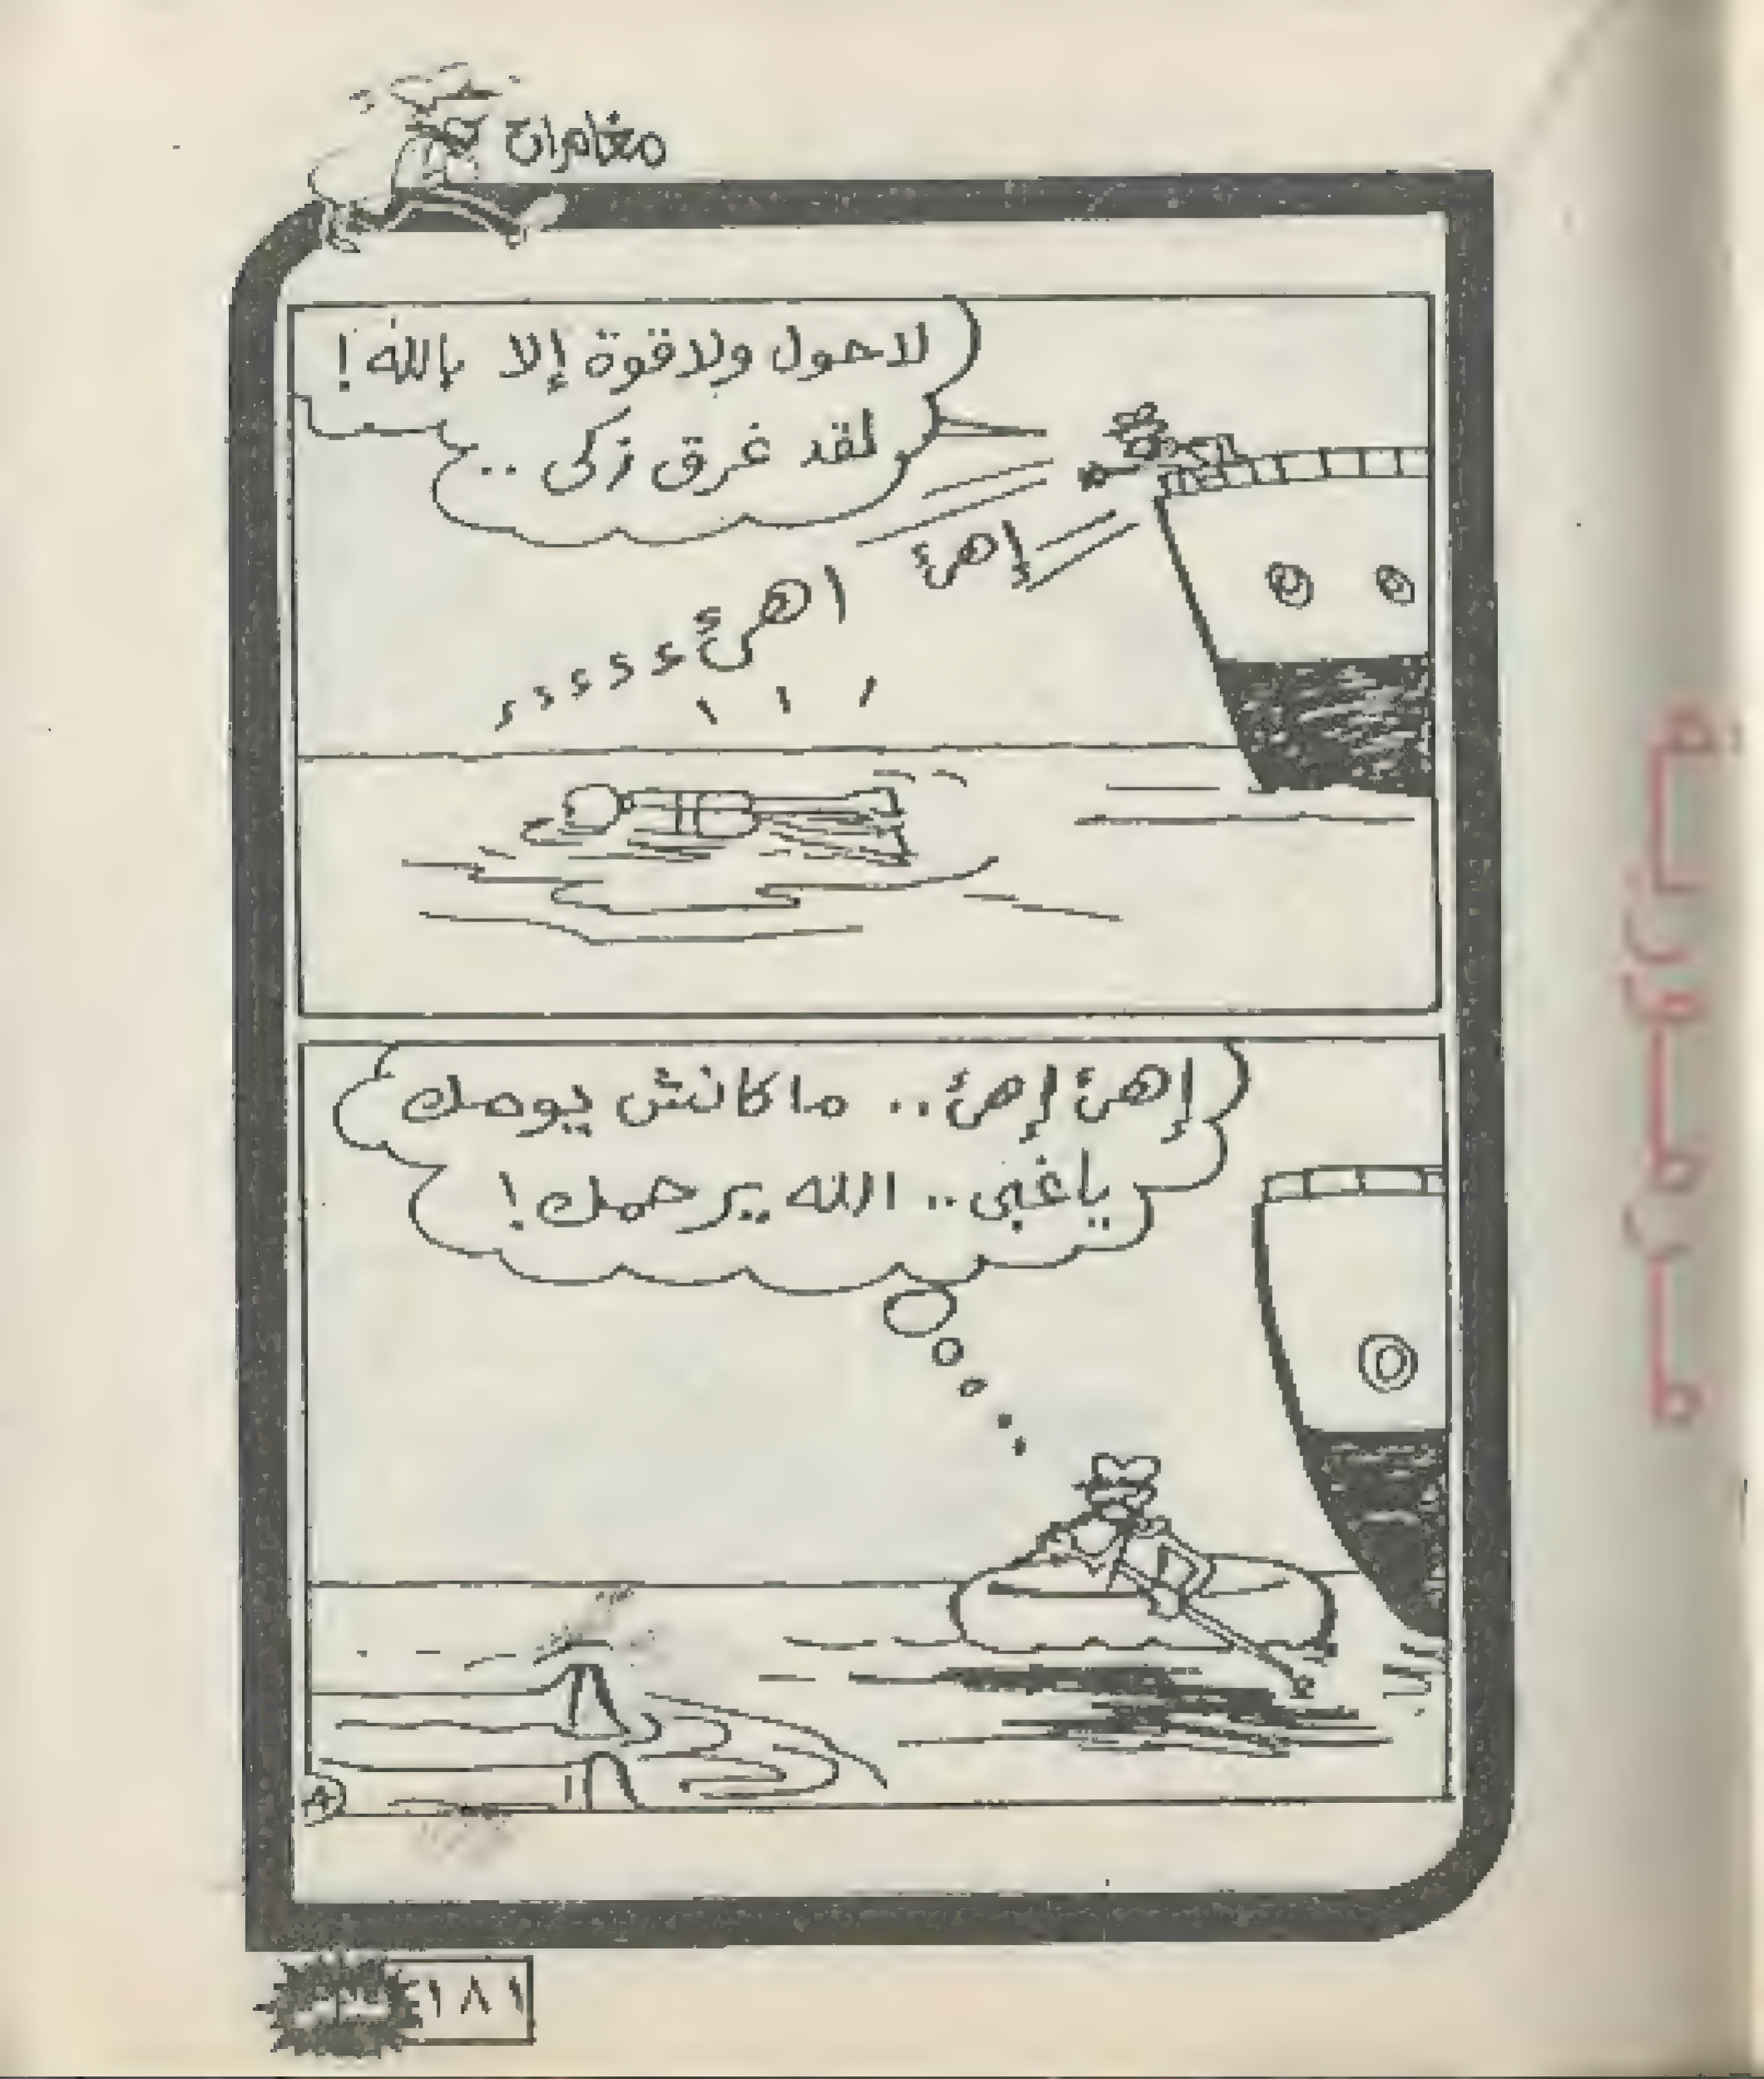 مغامرات
لاحول ولاقوة إلا بالله!
لقد غرق زكى ..
إهئ
اهئ ء ء ء ء ء ء
إهئ إهئ.. ماكانش يومك
ياغبى.. الله يرحمك!
١٨١